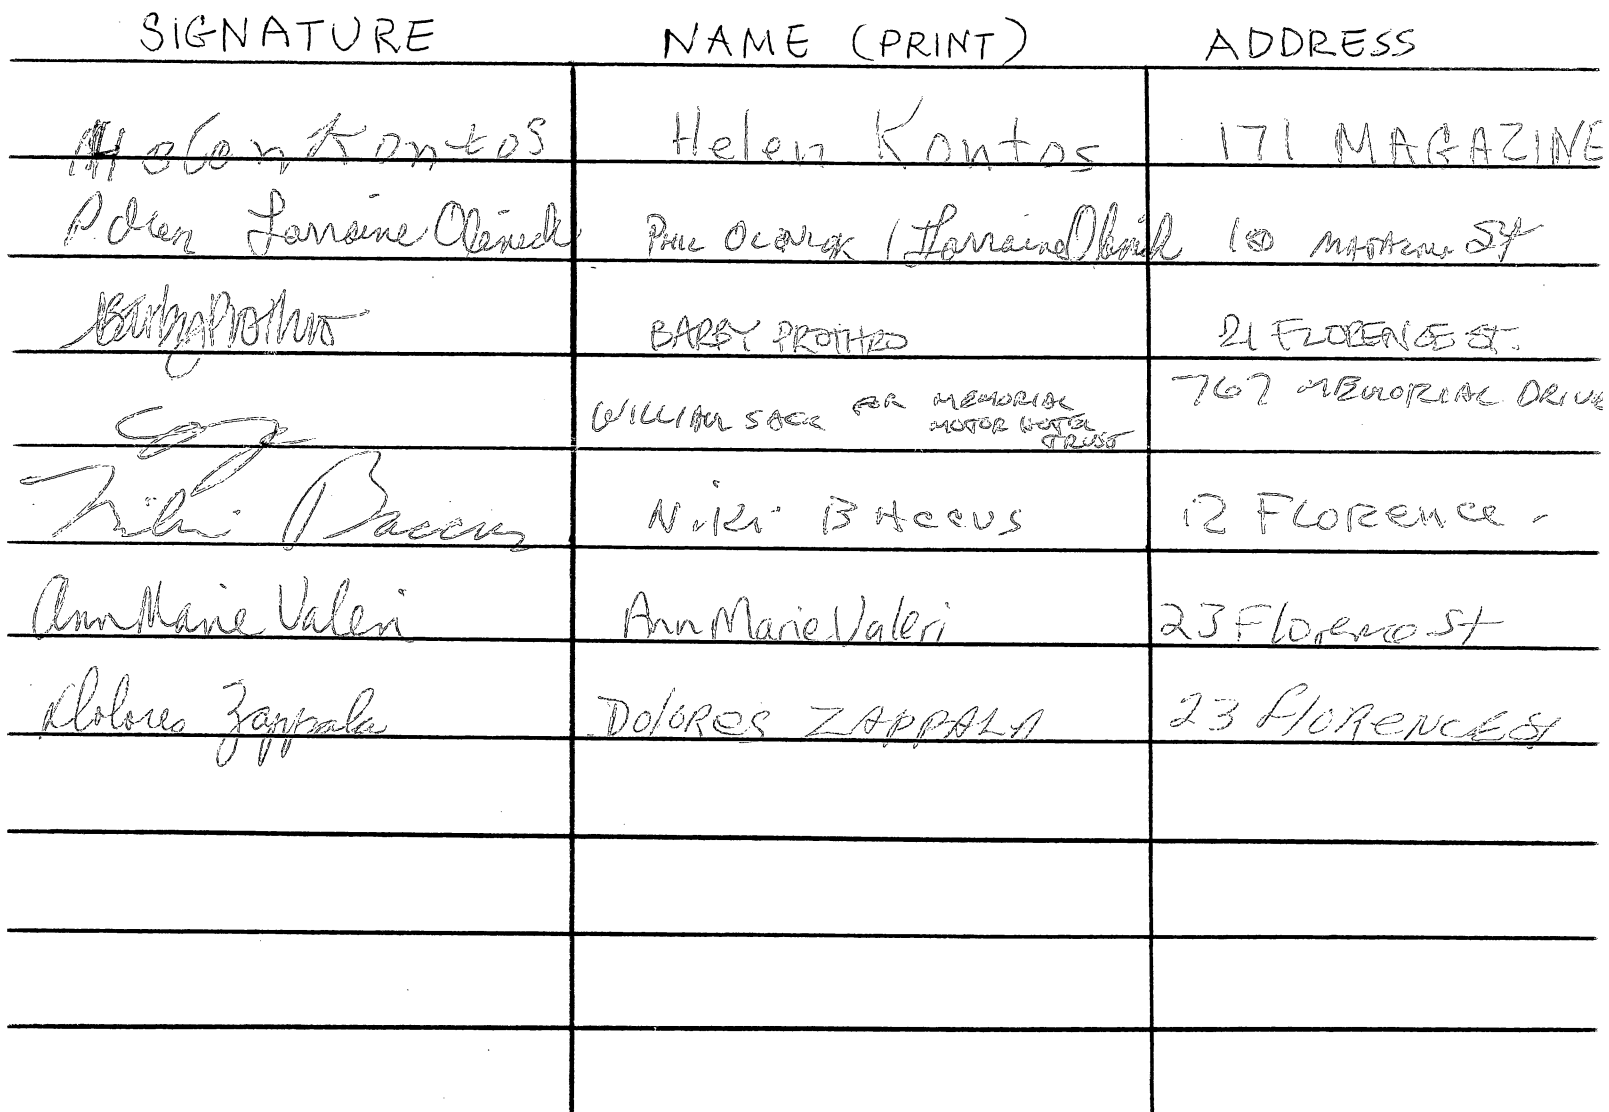 SIGNATURE NAME (PRINT) ADDRESS
Helen Kontos Helen Kontos 171 MAGAZINE
P. Lorraine Olenick PHIL / Lorraine Olenick 10 ST
Barby Prothro BARBY PROTHRO 21 FLORENCE ST.
WILLIAM SACK FOR MEMORIAL MOTOR HOTEL TRUST 767 MEMORIAL DRIVE
Niki Baccus Niki BAccus 12 FLORence
AnnMarie Valeri AnnMarie Valeri 23 Florence St
Dolores Zappala DOlORES ZAPPALA 23 FlORENCE St